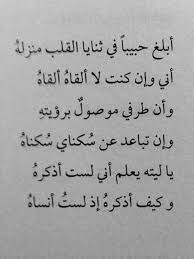 أبلغ حبيباً في ثنايا القلب منزلهُ
أني وإن كنت لا ألقاهُ ألقاهُ
وأن طرفي موصولٌ برؤيتهِ
وإن تباعد عن سُكناي سُكناهُ
يا ليته يعلم أني لست أذكرهُ
و كيف أذكرهُ إذ لستُ أنساهُ